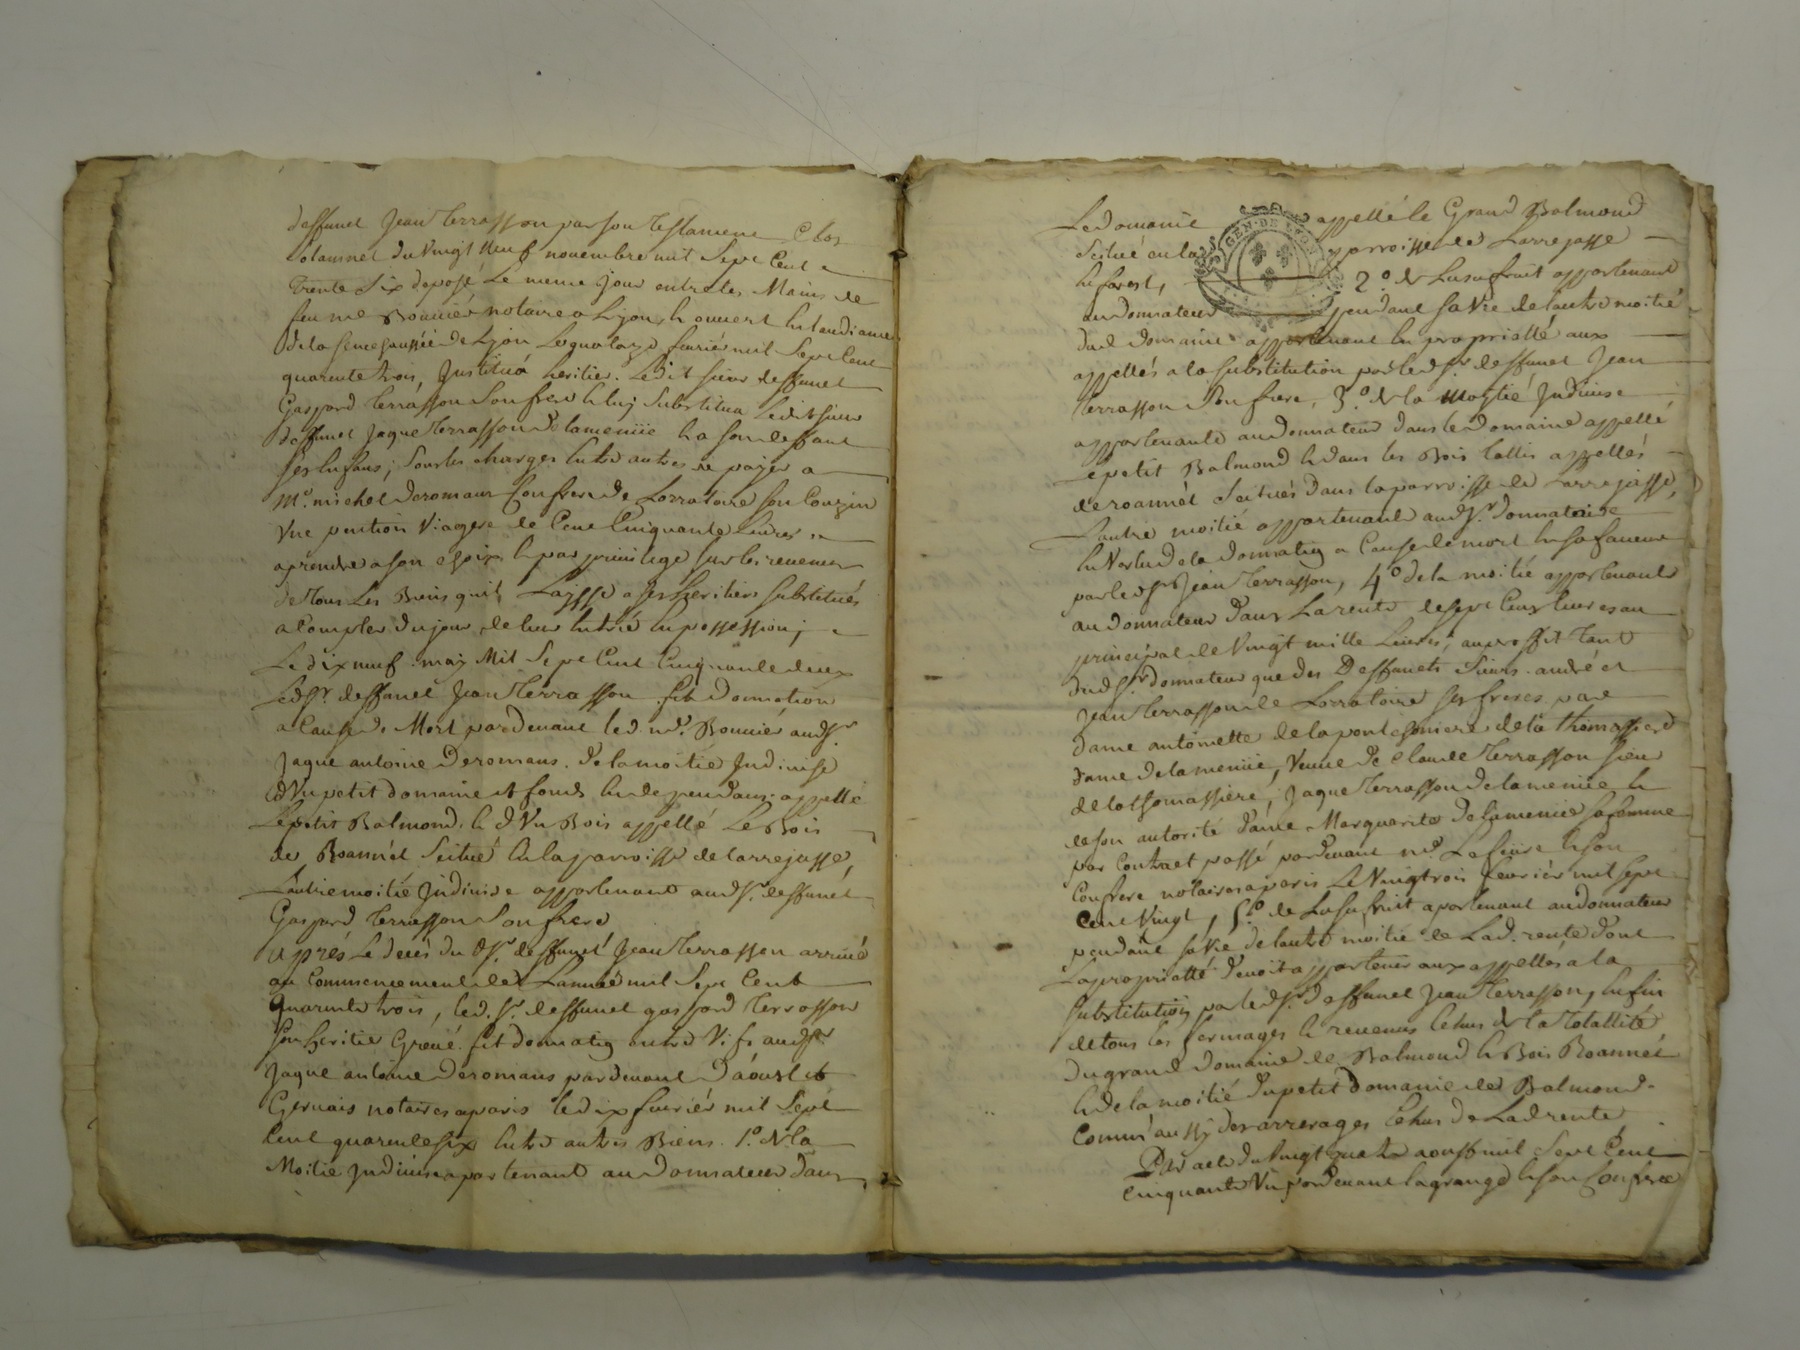 deffunct Jean Terrasson par son testament clos
solamnel du vingt neuf novembre mil sept cent
trente six deposé le meme jour entre les mains de
feu me Bonnier notaire a Lyon, & ouvert en laudiance
de la senechaussée de Lyon le quatorze fevrier mil sept cent
quarente trois, Justitua heritier ledit sieur deffunct
Gaspard Terrasson son frere & luy substitua ledit sieur
deffunct Jaque Terrasson Delameniie & a son deffaut
ses enfans; sous les charges entre autres de payer a
Mr. michel deromans confrere de Lorratoire son couzin
une pention viagere de cent cinquante livres
a prendre a son choix & par privilege sur les revenus
de tous les Biens quil laisse a ses heritiers substitués
a compter du jour de leur entrée en possession;
Le dix neuf may mil sept cent cinquante deux
Ledsr. deffunct Jean Terrasson fit donnation
a cause de Mort pardevant led. me. Bonnier audsr.
Jaque antoine Deromans. de la moitié Judivise
d'un petit domaine et fonds en dependans appellé
Le petit Balmond. & d'un Bois appellé Le Bois
de Roannét scitué en la parroisse de larrejasse,
Lautre moitié Judivise appartenant audsr. deffunct
Gaspard Terrasson son frere
après le decés du dsr. deffunct Jean Terrasson arrivé
au commencement de Lannée mil sept cent
quarente trois, led. sr. deffunct gaspard Terrasson
son heritier grevé fit donnation entre vifs audsr.
Jaque antoine Deromans pardevant D'aoust &
Gervais notaires a paris le dix fevriér mil sept
cent quarente six entre autres Biens. 1o. de la
Moitié Judivise apartenant au donnateur dans
Le domaine appellé le Grand Balmond
scitué en la parroisse de Larrejasse
en forest, 2o. de Lusufruit appartenant
au donnateur pendant sa vie de lautre moitié
dud. domaine appartenant en proprietté aux
appellés a la substitution par ledsr. deffunct Jean
Terrasson son frere, 3o. de la moytié Judivise
appartenante au donnateur dans le domaine appellé
Le petit Balmond & dans les Bois taillis appellés
de roannét scitués dans la parroisse de Larrejasse,
Lautre moitié appartenant audsr. donnataire
en vertu de la donnation a cause de mort en sa faveur
par ledsr. Jean Terrasson, 4o. de la moitié appartenant
au donnateur dans La rente de sept cens livres au
principal de vingt mille Livres, au proffit tant
dudsr. donnateur que des Deffuncts sieurs andré et
Jean Terrasson de Lorratoire ses freres par
dame antoinette de la pont
dame Delameniie, veuve de Claude Terrasson sieur
de la thomassiere, Jaque Terrasson Delameniie &
de son autorité dame Marguerite Delameniie sa femme
par contract passé pardevant me. Lefévre & son
confrere notaires a paris Le vingt trois fevriér mil sept
cent vingt, 5o. de Lusufruit apartenant au donnateur
pendant sa vie de lautre moitié de Lad. rente dont
La proprietté devoit appartenir aux appellés a la
substitution par ledsr. deffunct Jean Terrasson, enfin
de tous les fermages & revenus echus de la totallité
du grand domaine de Balmond & Bois Roannét
& de la moitié du petit domaine de Balmond
comm'aussy des arrerages echus de Lad. rente
Par acte du vingt quatre aoust mil sept cent
cinquante un pardevant lagrange & son confrere
GEN. DE LYON